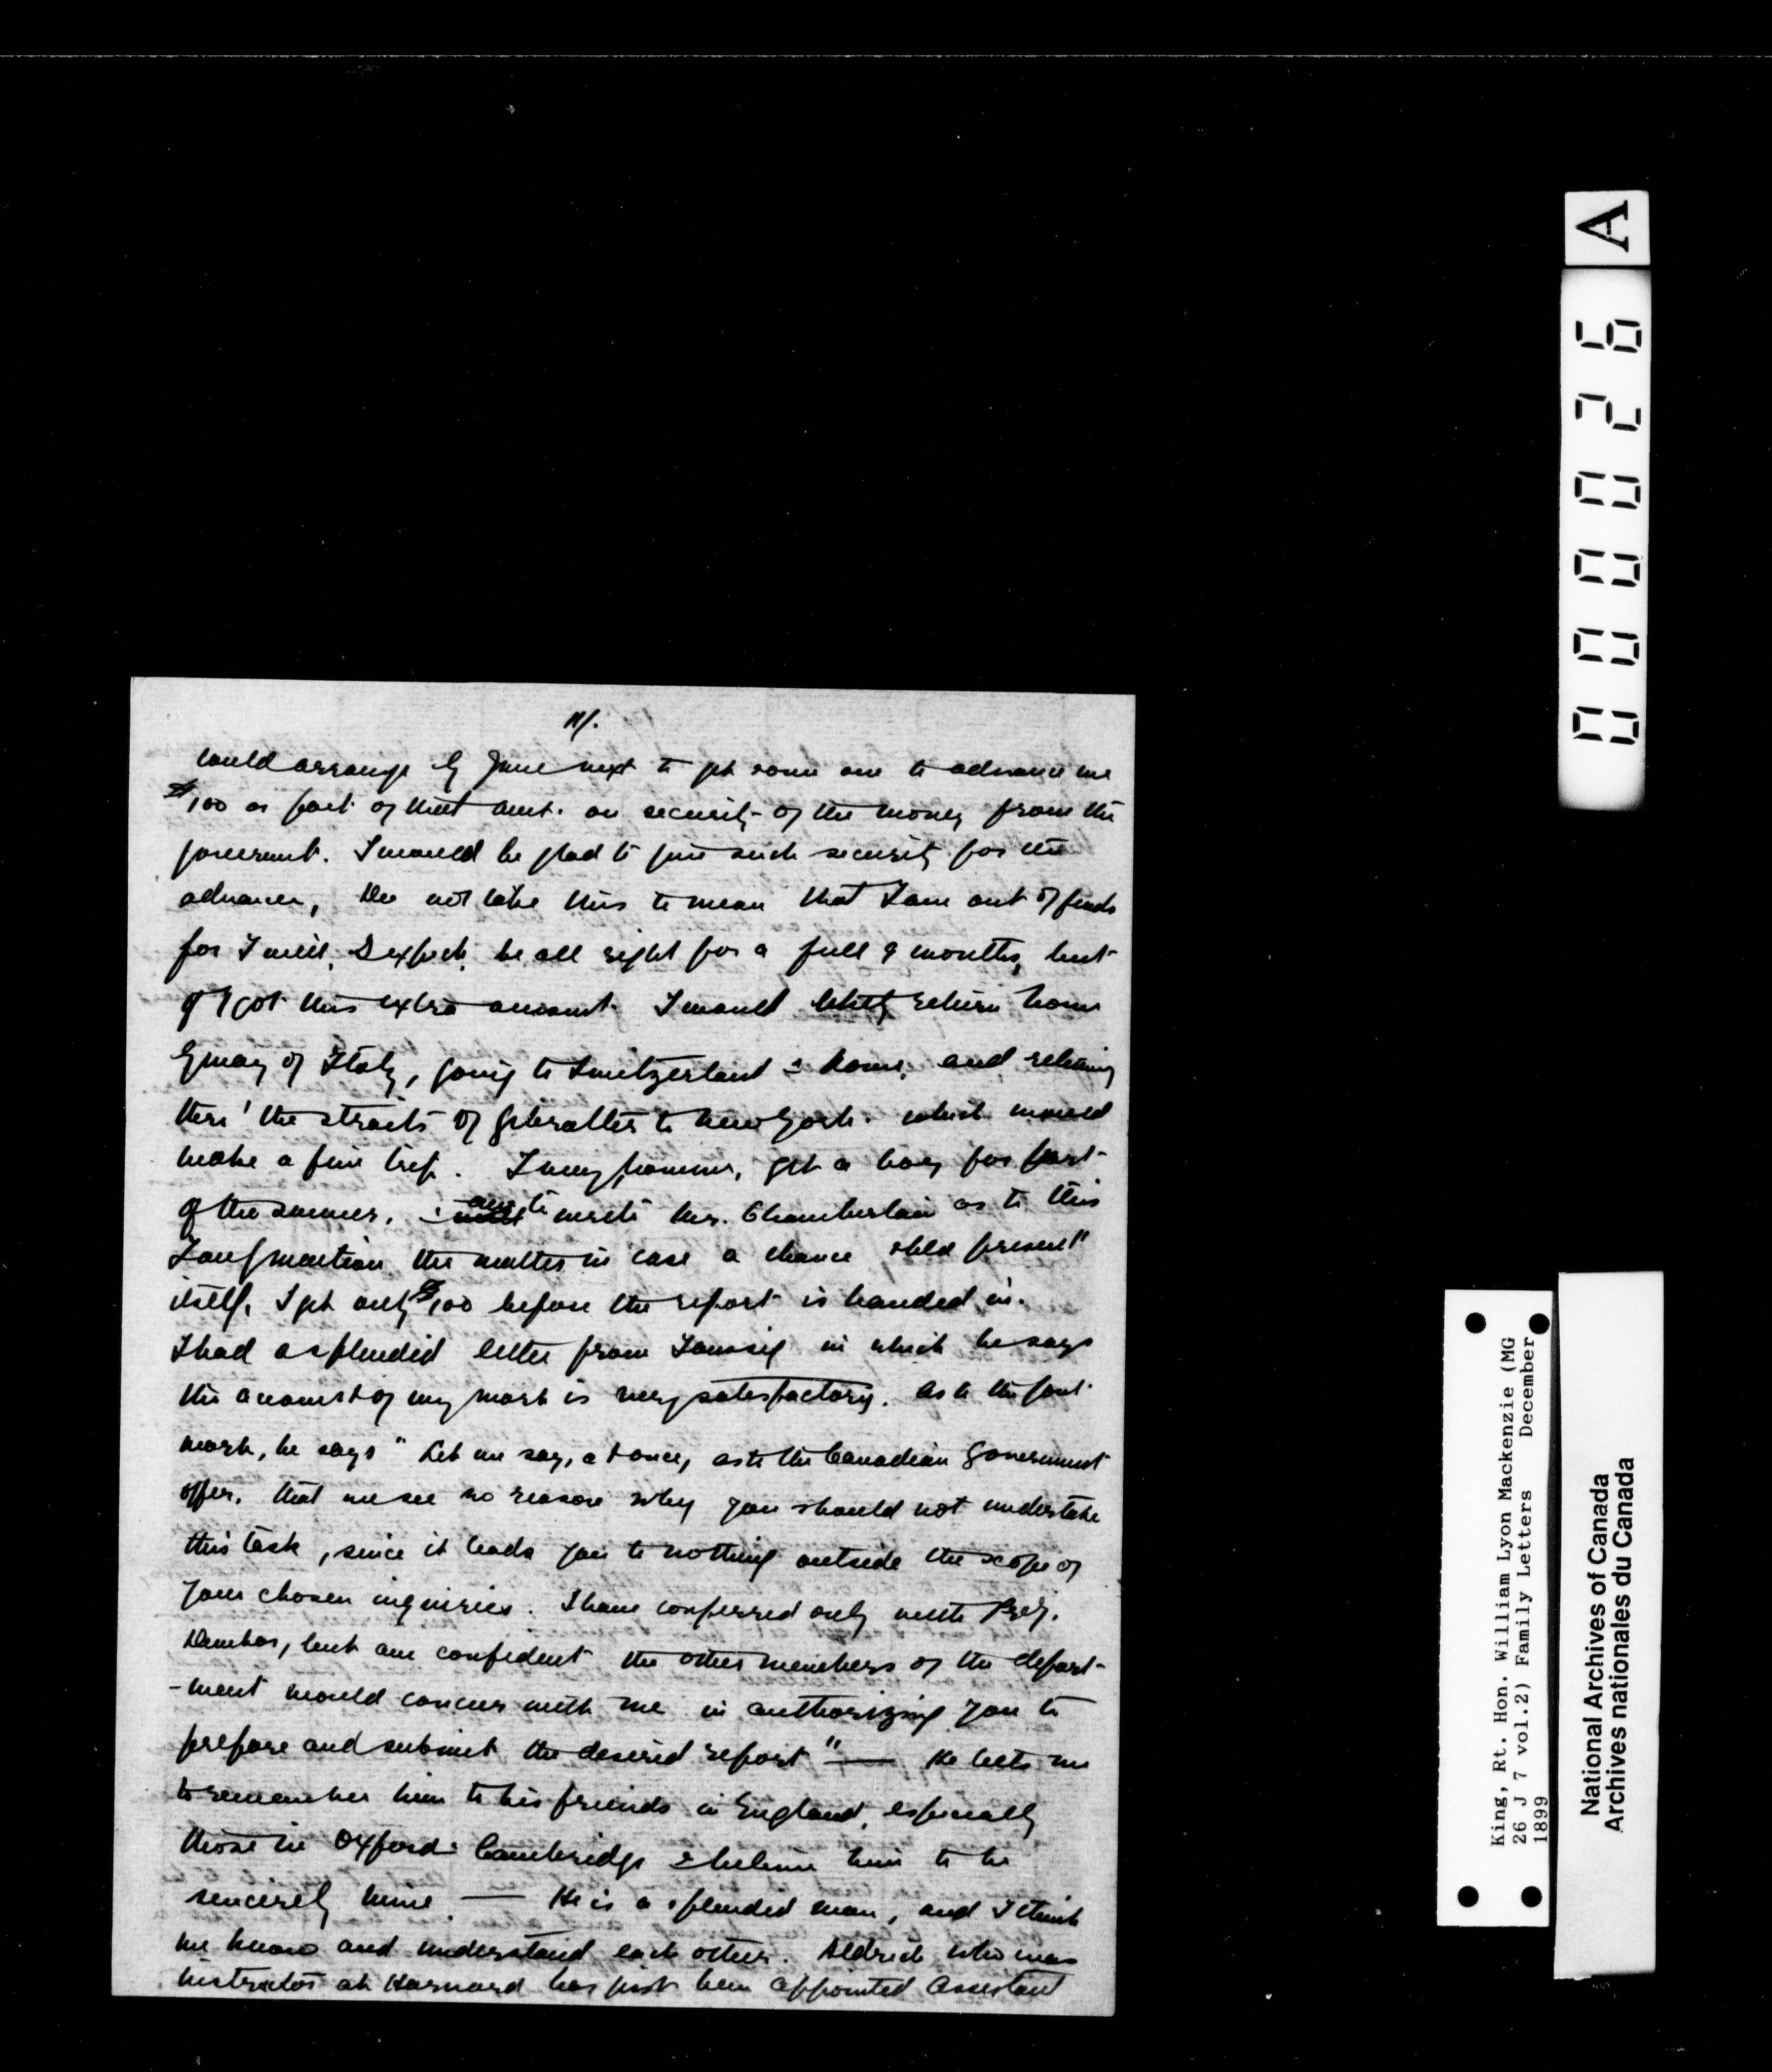 11/.
could arrange by June next to get some one to advance me
$100 or part of that amt. on security of the money from the
goverment. I would be glad to give such security for the
advance, Do not take this to mean that I am out of funds
for I will, I expect, be all right for a full 9 months, but
if I got this extra amount I would likely return home
by way of Italy, going to Switzerland & Rome, and returning
thro' the straits of Gibralter to New York. which would
make a fine trip. I may, however, get a boy for part
of the summer, am to write Mrs. Chamberlain as to this
I only mention the matter in case a chance shld present
itself. I get only $100 before the report is handed in.
I had a splendid letter from Taussig in which he says
the account of my work is very satisfactory. As to the govt
work, he says "Let me say, at once, as to the Canadian Government
offer, that we see no reason why you should not undertake
this task, since it leads you to nothing outside the scope of
your chosen inquiries. I have conferred only with Prof.
Dunbar, but am confident the other members of the depart-
-ment would concur with me in authorizing you to
prepare and submit the desired report" — He tells me
to remember him to his friends in England, especially
those in Oxford & Cambridge & believe him to be
sincerely mine. — He is a splendid man, and I think
we know and understand each other. Aldrich who was
instructor at Harvard has just been appointed assistant
A
0000026
King, Rt. Hon. William Lyon Mackenzie (MG
26 J 7 vol.2) Family Letters December
1899
National Archives of Canada
Archives nationales du Canada